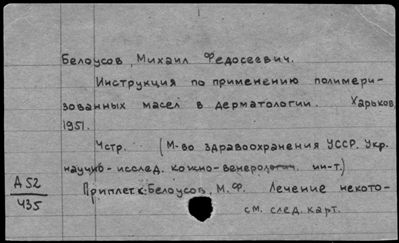 Белоусов, Михаил Федосеевич.
Инструкция по применению полимери-
зованных масел в дерматологии. Харьков,
1951.
Чстр. (М-во здравоохранения УССР. Укр.
научно-исслед. кожно-венерологич. ин-т.)
А52
Ч35
Приплет к: Белоусов, М. Ф. Лечение некото-
см. след. карт.